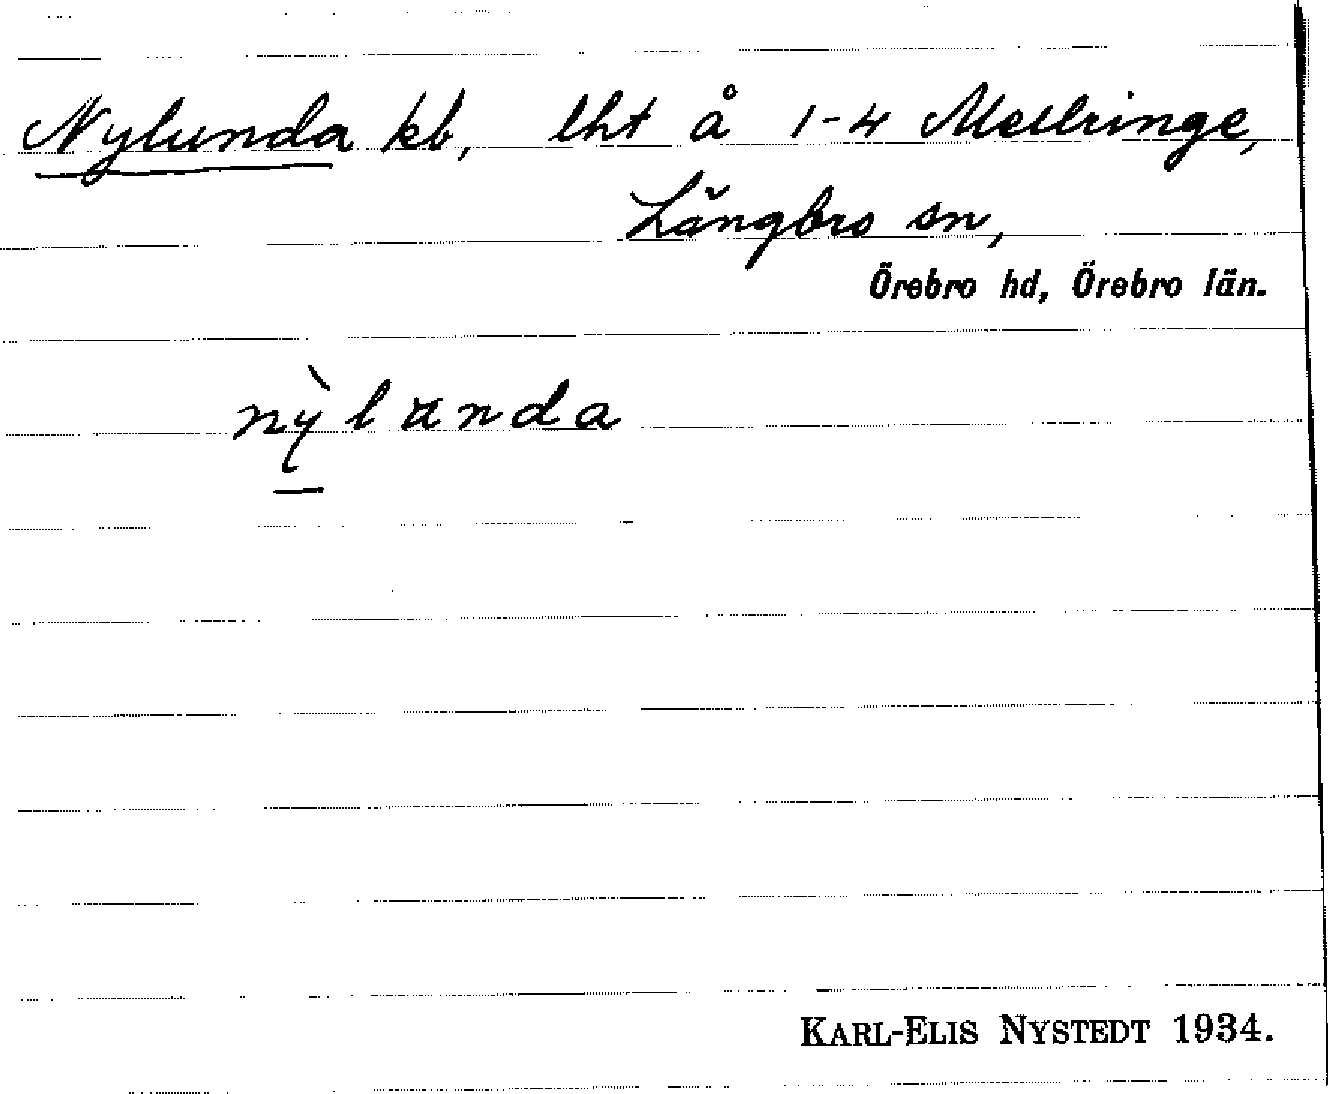 Nylunda kb, lht å 1-4 Mellringe,
Långbro sn,
Örebro hd, Örebro län.
nỳlunda
KARL-ELIS NYSTEDT 1934.